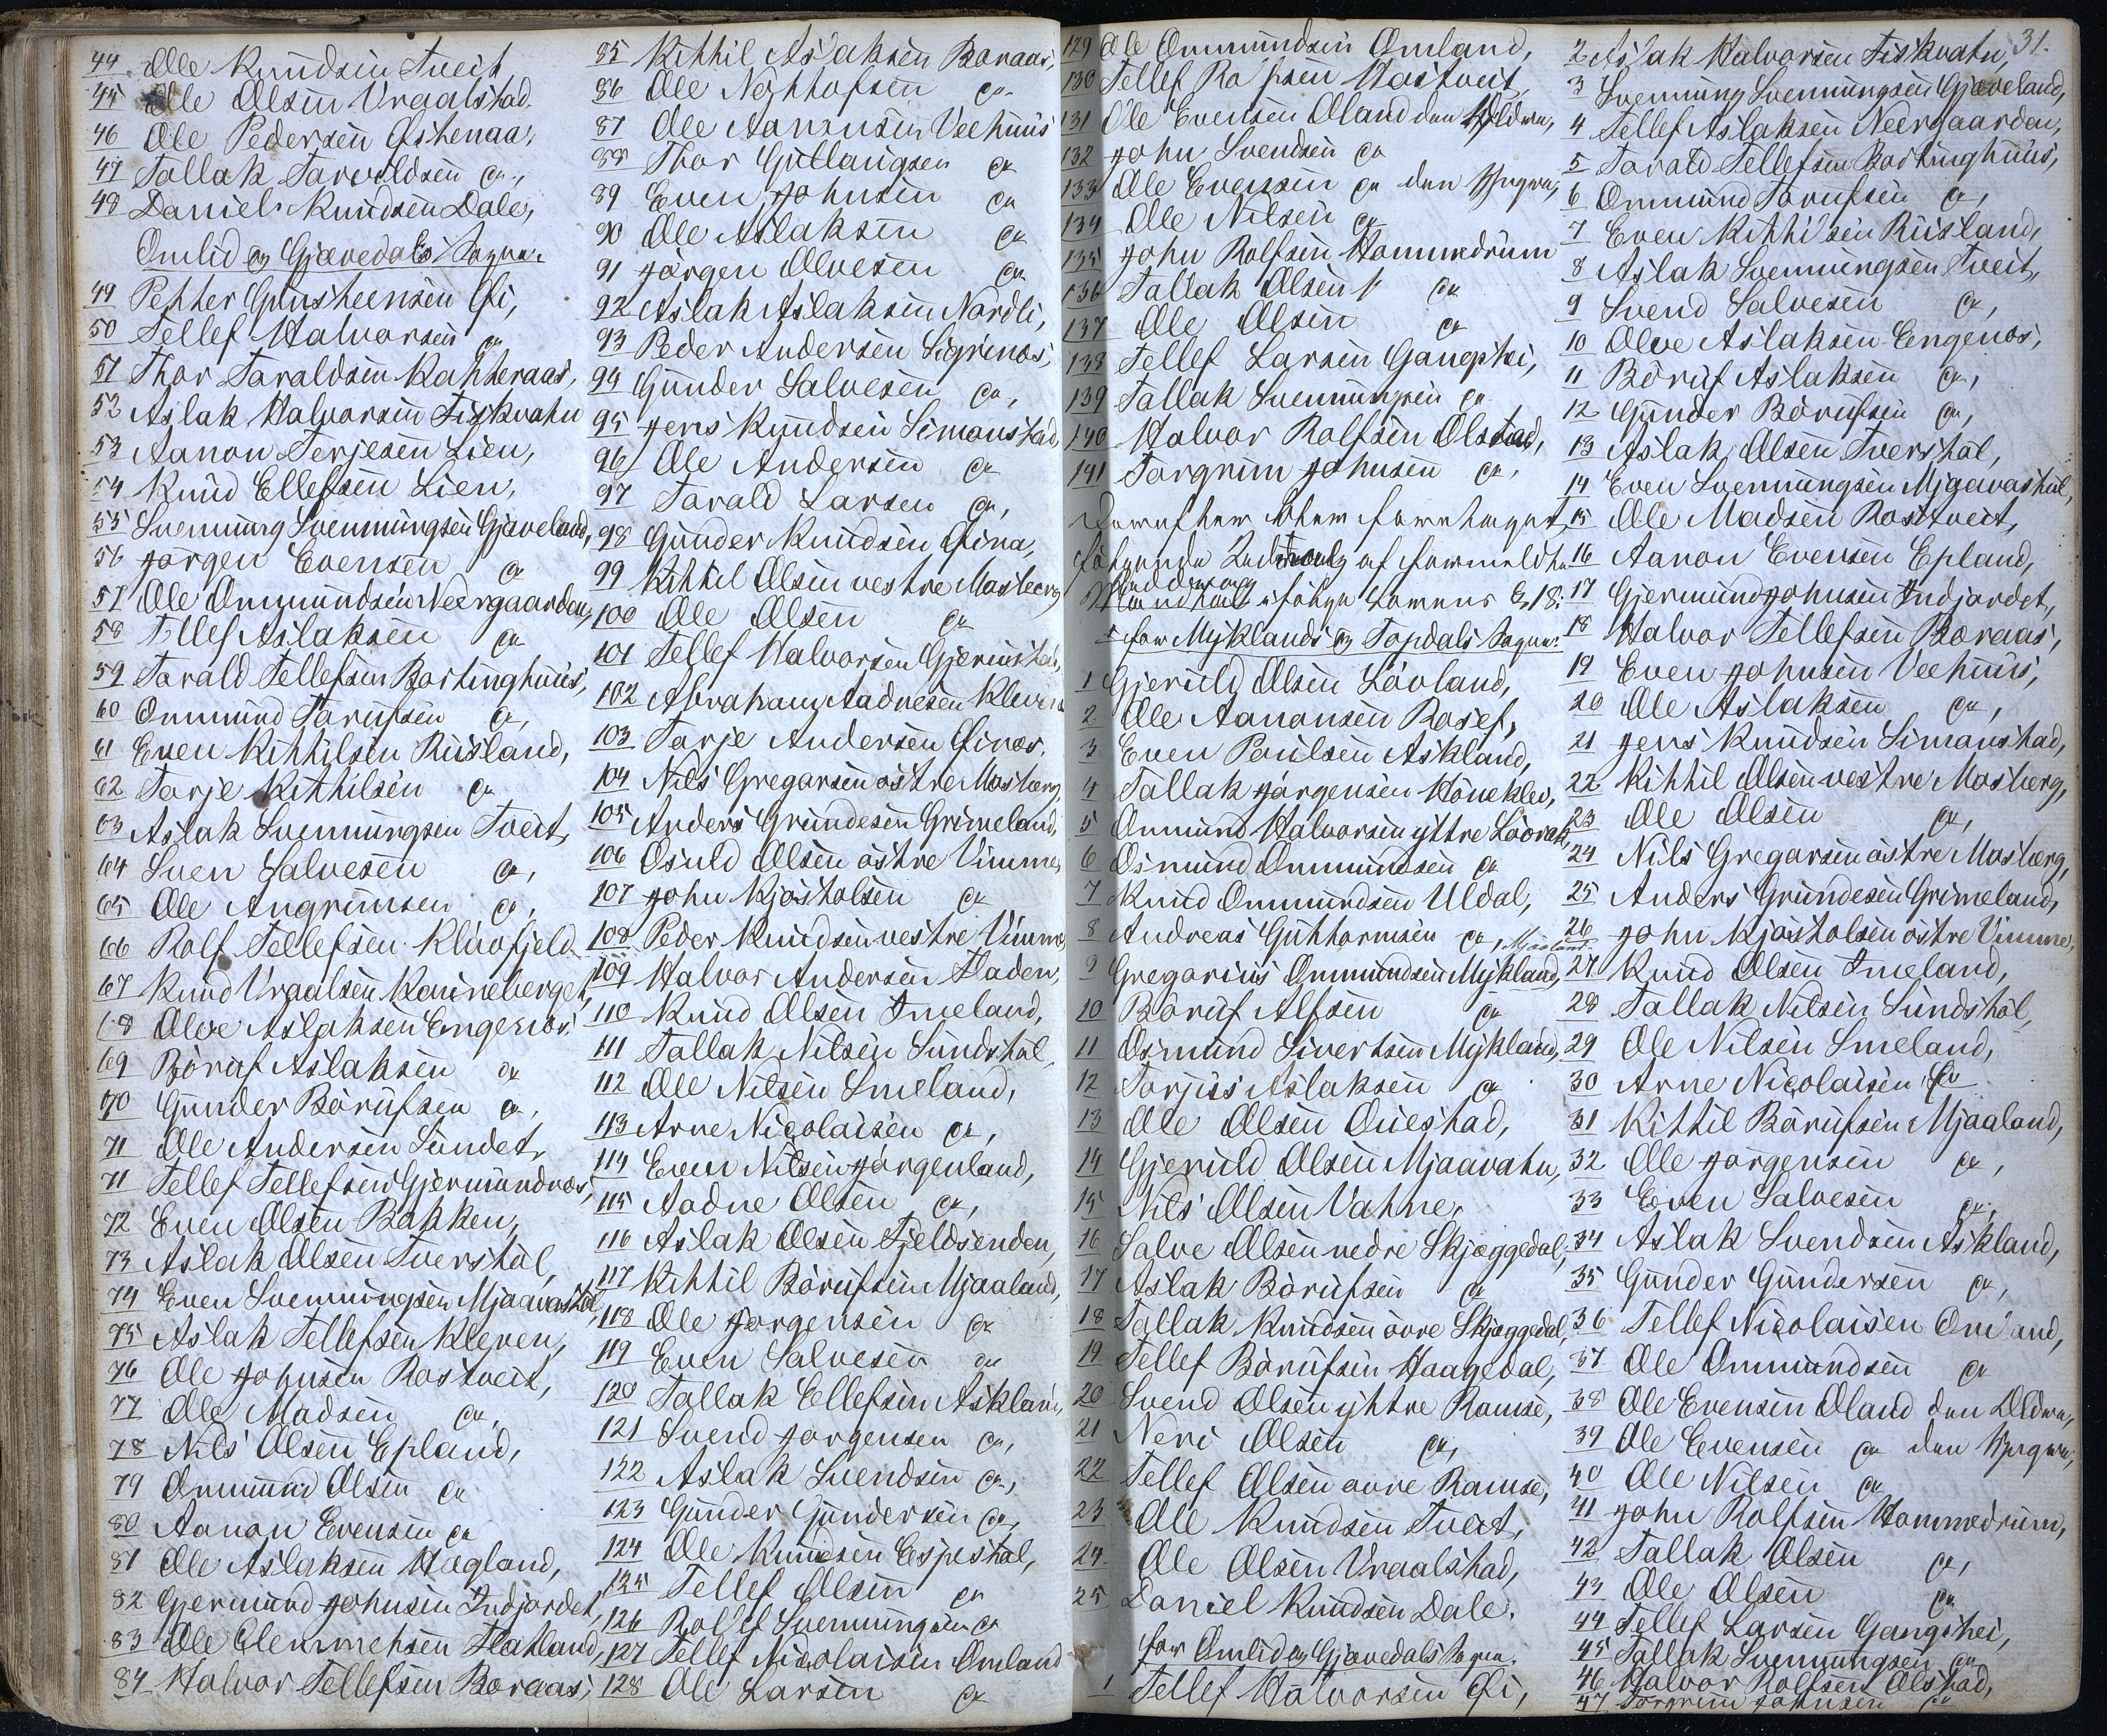 44 Ole Knudsen Tveit
45 Ole Olsen Vraalstad
46 Ole Pedersen Østenaa,
47 Tallak Taraldsen do,
48 Daniel Knudsen Dale,
Omlid og Gjævedals Sogne.
49 Petter Gunsteensen Øi,
50 Tellef Halvorsen do
51 Thor Taraldsen Katteraas,
52 Aslak Halvorsen Fiskvatn
53 Aanon Terjesen Lien,
54 Knud Ellefsen Lien,
55 Svennung Svennungsen Gjæveland,
56 Jørgen Evensen do
57 Ole Ommundsen Neergaarden,
58 Tellef Aslaksen do
59 Tarald Tellefsen Bortinghuus,
60 Ommund Tarufsen do,
61 Even Kittilsen Riisland,
62 Tarje Kittilsen do
63 Aslak Svennungsen Tveit,
64 Sven Salvesen do,
65 Ole Angrimsen do,
66 Rolf Tellefsen Kløvfjeld
67 Knud Vraalsen Kauneberget,
68 Olve Aslaksen Engenos
69 Børuf Aslaksen do
70 Gunder Børufsen do,
71 Ole Andersen Sundet,
71 Tellef Tellefsen Gjermundnæs,
72 Even Olsen Bakken,
73 Aslak Olsen Tverstøl,
74 Even Svenningsen Mjaavastøl,
75 Aslak Tellefsen Kleven,
76 Ole Johnsen Rostveit,
77 Ole Madsen do,
78 Nils Olsen Epland,
79 Ommund Olsen do
80 Aanon Evensen do
81 Ole Aslaksen Hægland,
82 Gjermund Johnsen Indjordet,
83 Ole Clemmetsen Flatland,
84 Halvor Tellefsen Boraas,
85 Kittil Aslaksen Boraas,
86 Ole Nottolfsen do
87 Ole Aanonsen Veehuus
88 Thor Gullaugsen do
89 Even Johnsen do
90 Ole Aslaksen do
91 Jørgen Olvesen do
92 Aslak Aslaksen Nordli,
93 Peder Andersen Sigrinæs,
94 Gunder Salvesen do,
95 Jens Knudsen Simonstad,
96 Ole Andersen do
97 Tarald Larsen do,
98 Gunder Knudsen Øina,
99 Kittil Olsen vestre Mosberg
100 Ole Olsen do
101 Tellef Halvorsen Gjerustøl,
102 Abraham Aadnesen Kleven
103 Tarje Andersen Øinæs,
104 Nils Gregarsen østre Mosberg,
105 Anders Grundesen Grimeland,
106 Osuld Olsen østre Vimme,
107 John Kjøstolsen do
108 Peder Knudsen vestre Vimme,
109 Halvor Andersen Fladen,
110 Knud Olsen Imeland,
111 Tallak Nilsen Sundstøl
112 Ole Nilsen Smeland,
113 Arne Nicolaisen do,
114 Even Nilsen Jørgenland,
115 Aadne Olsen do,
116 Aslak Olsen Fjeldsenden,
117 Kittil Børufsen Mjaaland,
118 Ole Jørgensen do
119 Even Salvesen do
120 Tallak Ellefsen Askland,
121 Svend Jørgensen do,
122 Aslak Svendsen do,
123 Gunder Gundersen do,
124 Ole Knudsen Espestøl,
125 Tellef Olsen do
126 Rollef Svennungsen do
127 Tellef Nicolaisen Omland
128 Ole Larsen do
31.
129 Ole Ommundsen Omland,
130 Tellef Rolfsen Hostveit,
131 Ole Evensen Oland den Ældre,
132 John Svendsen do
133 Ole Evensen do den Yngre,
134 Ole Nilsen do
135 John Rolfsen Hommedrum
136 Tallak Olsen do
137 Ole Olsen do
138 Tellef Larsen Gangshei,
139 Tallak Svennungsen do
140 Halvor Rolfsen Olstad,
141 Torgrim Johnsen do,
følgende af
følge Lovens
for Myklands og Topdals Sogne:
1 Gjeruld Olsen Løvland,
2 Ole Aanansen Rosef,
3 Even Poulsen Askland,
4 Tallak Jørgensen Høneklev,
5 Ommund Halvorsen yttre Løvrak,
6 Osmund Ommundsen do
7 Knud Ommundsen Uldal,
8 Andreas Guttormsen do, Mjøland
9 Gregorius Ommundsen Mykland,
10 Børuf Alfsen do
11 Osmund Sivertsen Mykland,
12 Torjus Aslaksen do
13 Ole Olsen Ouestad,
14 Gjeruld Olsen Mjaavatn,
15 Nils Olsen Vatne,
16 Salve Olsen nedre Skjæggedal,
17 Aslak Børufsen do
18 Tallak Knudsen øvre Skjæggedal,
19 Tellef Børufsen Haagedal,
20 Svend Olsen yttre Ramse,
21 Neri Olsen do,
22 Tellef Olsen øvre Ramse,
23 Ole Knudsen Tveit,
24 Ole Olsen Vraalstad,
25 Daniel Knudsen Dale,
for Omlid og Gjævedals Sogne.
1 Tellef Halvorsen Øi,
2 Aslak Halvorsen Fiskvatn,
3 Svennung Svennungsen Gjæveland,
4 Tellef Aslaksen Neergaarden,
5 Tarald Tellefsen Bortinghuus,
6 Ommund Tarufsen do,
7 Even Kittilsen Riisland,
8 Aslak Svennungsen Tveit,
9 Svend Salvesen do,
10 Olve Aslaksen Engenos,
11 Børuf Aslaksen do,
12 Gunder Børufsen do,
13 Aslak Olsen Tverstøl,
14 Even Svennungsen Mjaavastøl,
15 Ole Madsen Rostveit,
16 Aanon Evensen Epland,
17 Gjermund Johnsen Indjordet,
18 Halvor Tellefsen Boraas,
19 Even Johnsen Veehuus,
20 Ole Aslaksen do,
21 Jens Knudsen Simonstad,
22 Kittil Olsen vestre Mosberg,
23 Ole Olsen do,
24 Nils Gregarsen østre Mosberg,
25 Anders Grundesen Grimeland,
26 John Kjøstolsen østre Vimme,
27 Knud Olsen Imeland,
28 Tallak Nilsen Sundstøl,
29 Ole Nilsen Smeland,
30 Arne Nicolaisen do
31 Kittil Børufsen Mjaaland,
32 Ole Jørgensen do,
33 Even Salvesen do,
34 Aslak Svendsen Askland,
35 Gunder Gundersen do,
36 Tellef Nicolaisen Omland,
37 Ole Ommundsen do
38 Ole Evensen Oland den Ældre,
39 Ole Evensen do den Yngre,
40 Ole Nilsen do
41 John Rolfsen Hommedrum,
42 Tallak Olsen do,
43 Ole Olsen do
44 Tellef Larsen Gangshei,
45 Tallak Svennungsen do
46 Halvor Rolfsen Olstad,
47 Torgrim Johnsen do